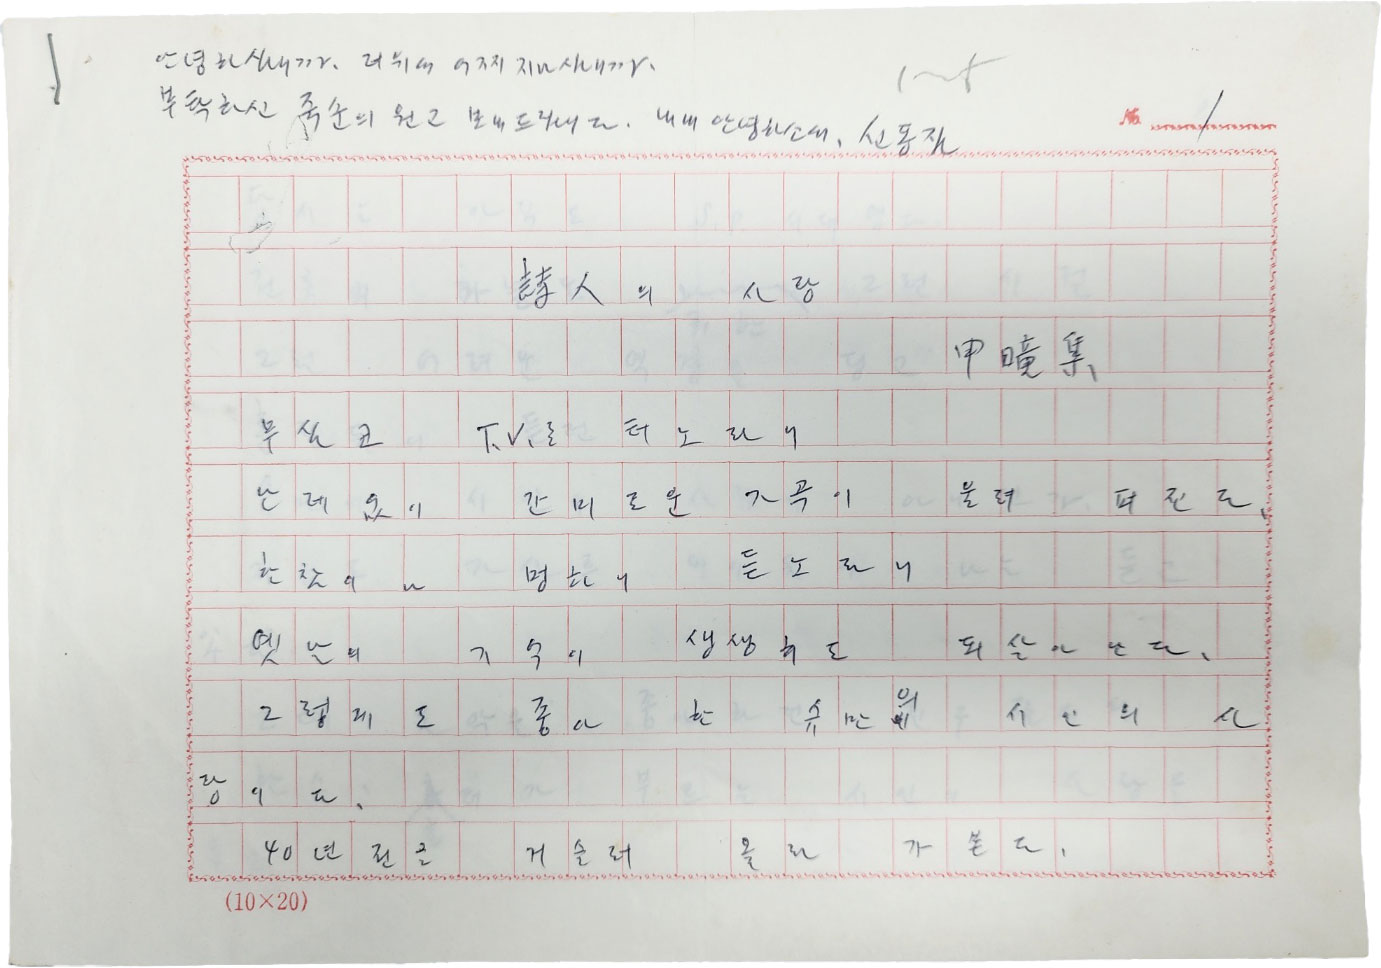 안녕하십니까. 더위에 어찌 지내시니까.
1~5
부탁하신 육순의 원고 보내드립니다. 내내 안녕하소서, 신동집
No. 1
詩人의 사랑
申瞳集
무심코 T.V.를 터노라니
난데없이 감미로운 가곡이 울려 퍼진다.
한참이나 멍하니 듣노라니
옛날의 기억이 생생히도 되살아난다.
그렇게도 좋아한 슈만의 시인의 사
랑이다.
40년전을 거슬러 올라가본다.
(10×20)